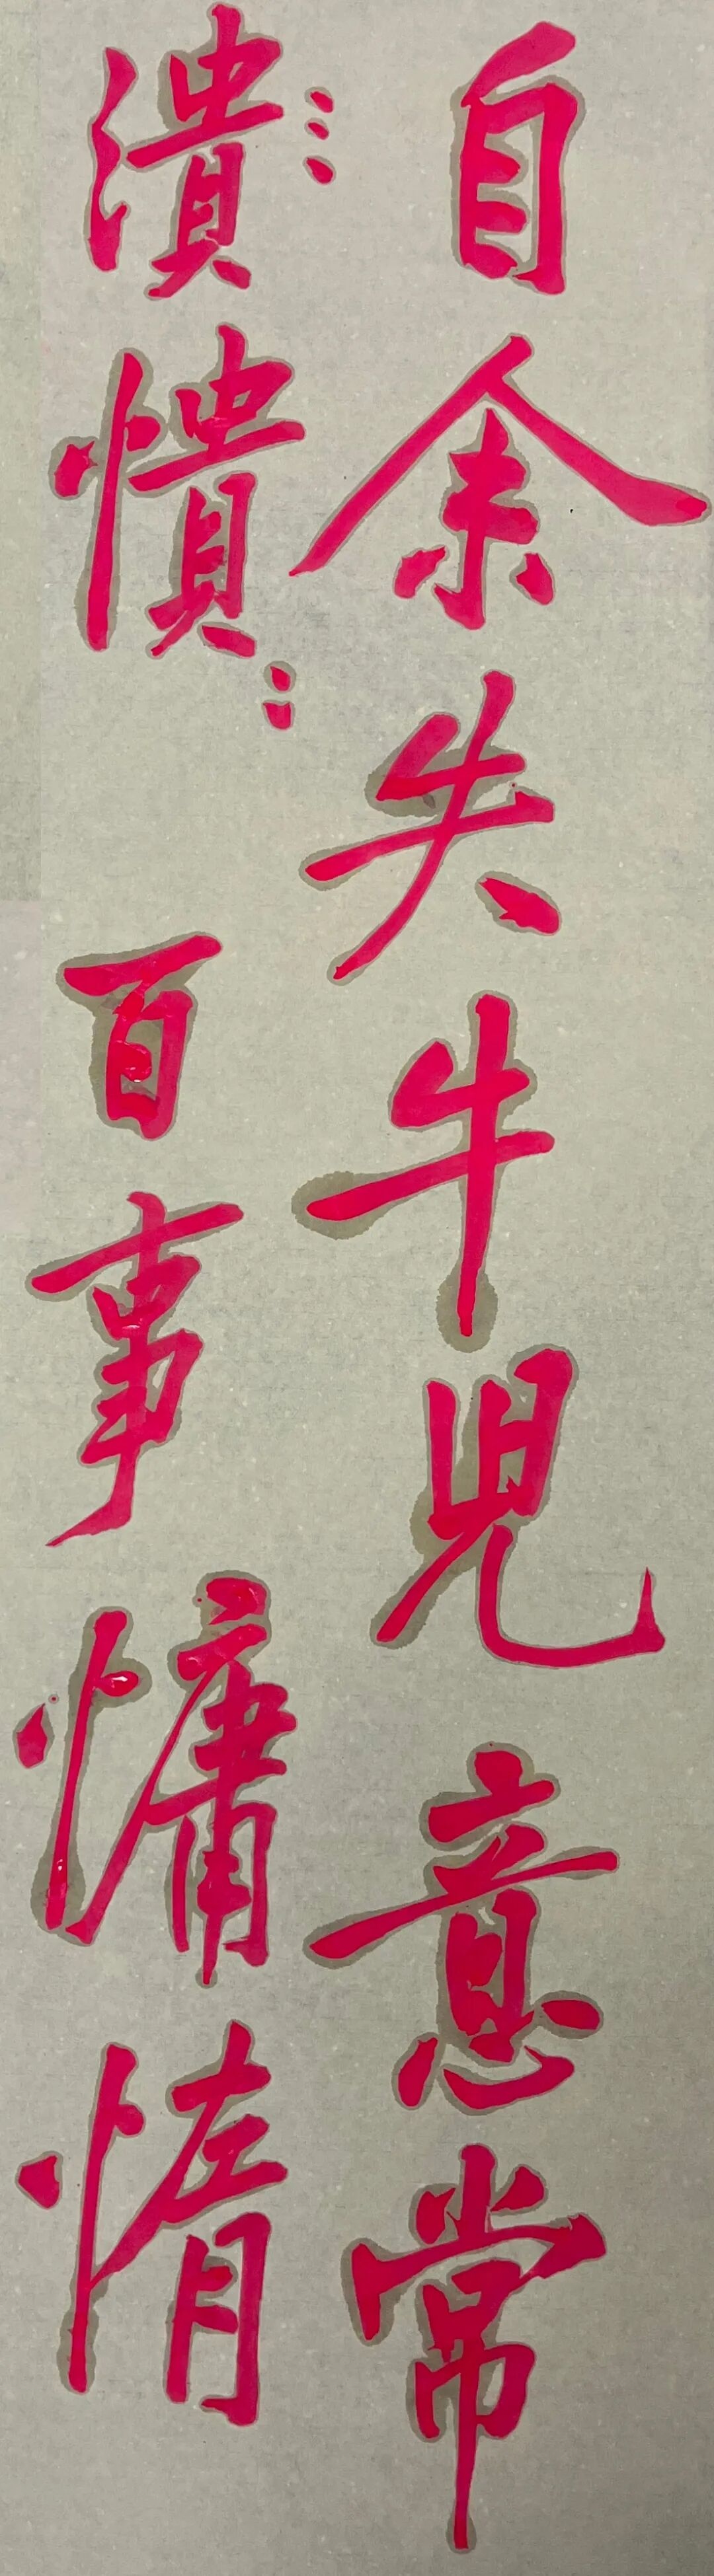 自余失牛児意常
潰憒々百事慵惰